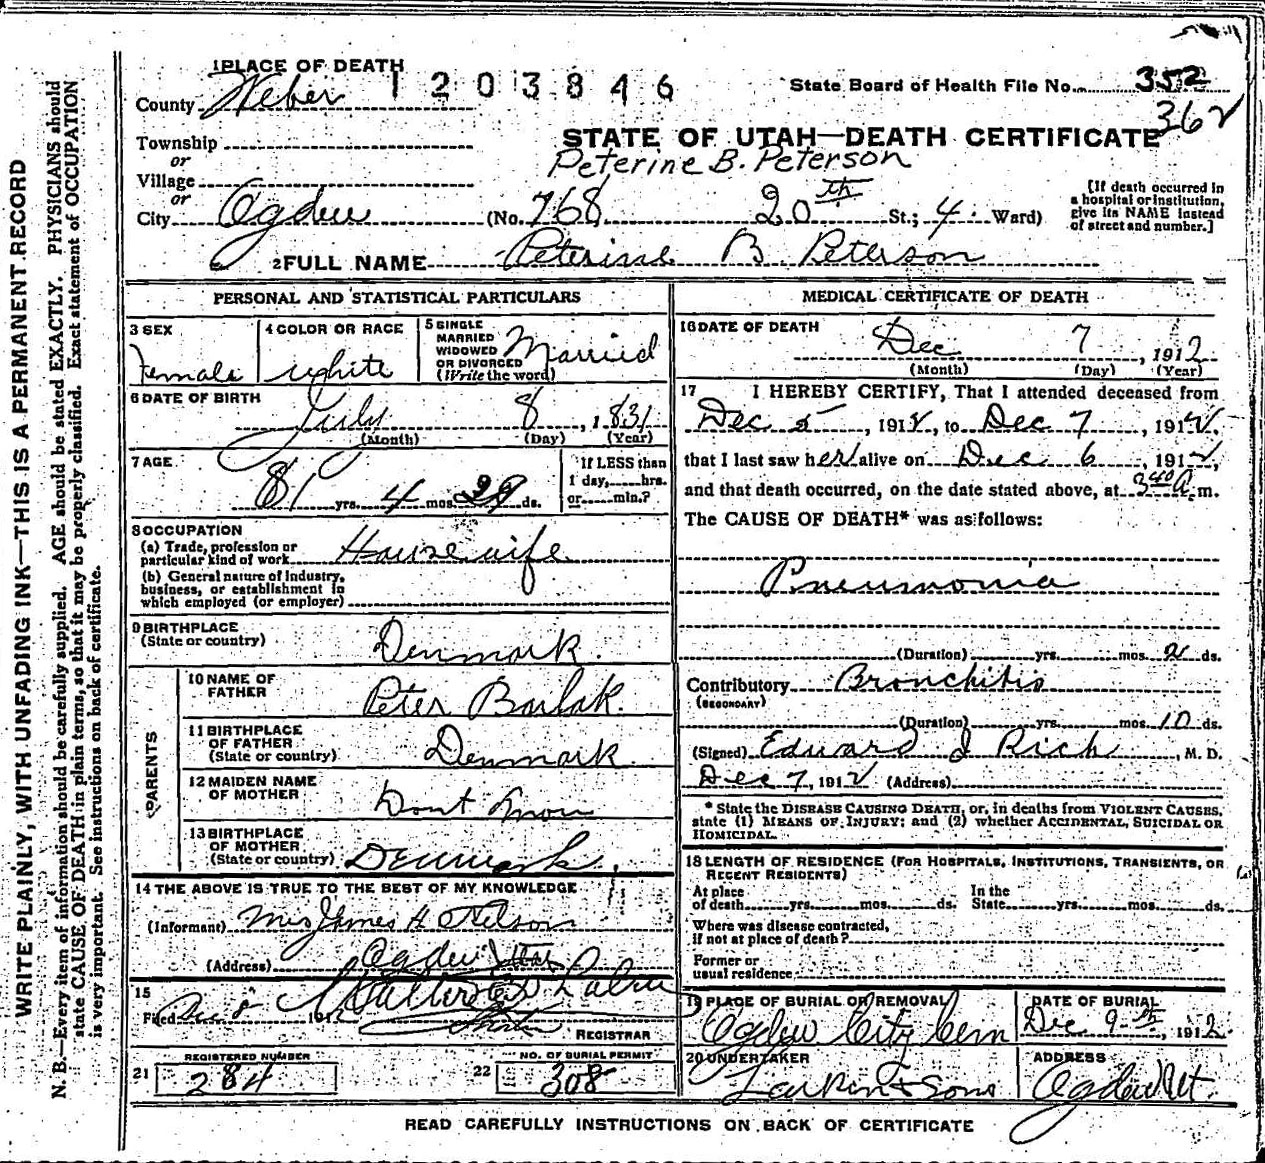 1 PLACE OF DEATH
1 2 0 3 8 4 6
State Board of Health File No. 352
362
County Weber
STATE OF UTAH—DEATH CERTIFICATE
Township
or
Village
or
Peterine B. Peterson
City Ogden (No. 768 20th St.; 4 Ward)
[If death occurred in
a hospital or institution,
give its NAME instead
of street and number.]
2 FULL NAME Peterine B. Peterson
PERSONAL AND STATISTICAL PARTICULARS
3 SEX
Female
4 COLOR OR RACE
White
5 SINGLE
MARRIED
WIDOWED
OR DIVORCED
(Write the word)
Married
6 DATE OF BIRTH
July 8, 1831
(Month) (Day) (Year)
7 AGE
81 yrs. 4 mos. 29 ds.
If LESS than
1 day, hrs.
or min.?
8 OCCUPATION
(a) Trade, profession or
particular kind of work Housewife
(b) General nature of industry,
business, or establishment in
which employed (or employer)
9 BIRTHPLACE
(State or country) Denmark
PARENTS
10 NAME OF
FATHER Peter Barlak.
11 BIRTHPLACE
OF FATHER
(State or country) Denmark
12 MAIDEN NAME
OF MOTHER Dont Know
13 BIRTHPLACE
OF MOTHER
(State or country) Denmark
14 THE ABOVE IS TRUE TO THE BEST OF MY KNOWLEDGE
(Informant) Mrs James H Nelson
(Address) Ogden Utah
15
Filed Dec 8 1912
REGISTRAR
21 REGISTERED NUMBER
284
22 NO. OF BURIAL PERMIT
308
MEDICAL CERTIFICATE OF DEATH
16 DATE OF DEATH
Dec 7, 1912
(Month) (Day) (Year)
17 I HEREBY CERTIFY, That I attended deceased from
Dec 5, 1912, to Dec 7, 1912,
that I last saw her alive on Dec 6, 1912,
and that death occurred, on the date stated above, at 3 40 A m.
The CAUSE OF DEATH* was as follows:
Pneumonia
(Duration) yrs. mos. 2 ds.
Contributory Bronchitis
(SECONDARY)
(Duration) yrs. mos. 10 ds.
(Signed) Edward I Rich, M. D.
Dec 7, 1912 (Address)
* State the DISEASE CAUSING DEATH, or, in deaths from VIOLENT CAUSES,
state (1) MEANS OF INJURY; and (2) whether ACCIDENTAL, SUICIDAL OR
HOMICIDAL.
18 LENGTH OF RESIDENCE (FOR HOSPITALS, INSTITUTIONS, TRANSIENTS, OR
RECENT RESIDENTS)
At place
of death yrs. mos. ds.
In the
State yrs. mos. ds.
Where was disease contracted,
if not at place of death?
Former or
usual residence
19 PLACE OF BURIAL OR REMOVAL
Ogden City Cem
DATE OF BURIAL
Dec 9th, 1912
20 UNDERTAKER
Larkin & Sons
ADDRESS
Ogden Ut.
READ CAREFULLY INSTRUCTIONS ON BACK OF CERTIFICATE
WRITE PLAINLY, WITH UNFADING INK—THIS IS A PERMANENT RECORD
N. B.—Every item of information should be carefully supplied. AGE should be stated EXACTLY. PHYSICIANS should
state CAUSE OF DEATH in plain terms, so that it may be properly classified. Exact statement of OCCUPATION
is very important. See instructions on back of certificate.